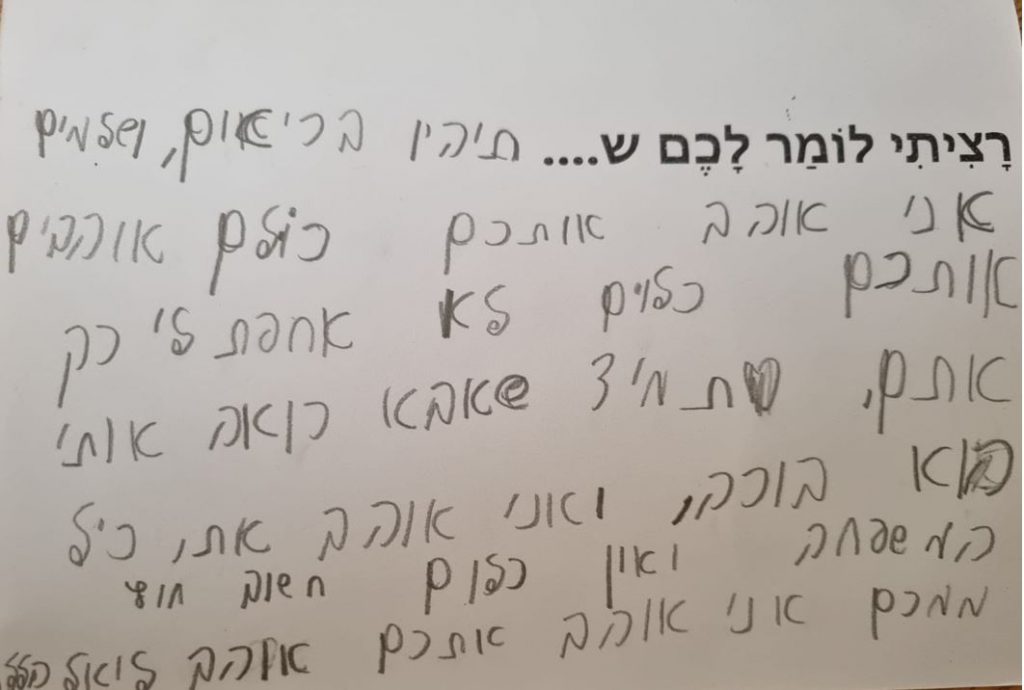 רָצִיתִי לוֹמַר לָכֶם ש.... תיהיו בריאום, ושלמים
אני אוהב אותכם כולם אוהבים
אותכם כלוים לא אחפת לי רק
אתם, תמיד שאבא רואה אותי
הוא בוכה, ואני אוהב את, כיל
המשפחה ואין כלום חשוב חוץ
ממכם אני אוהב אתכם אוהב